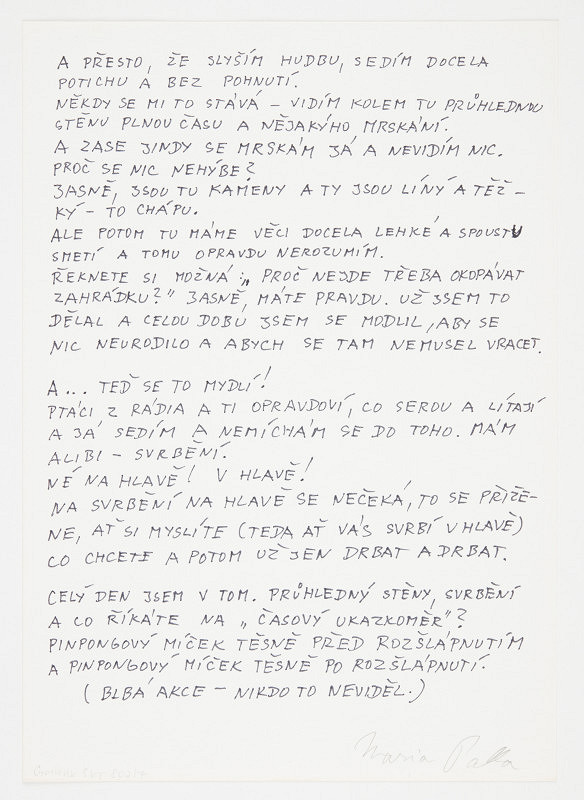 A PŘESTO, ŽE SLYŠÍM HUDBU, SEDÍM DOCELA
POTICHU A BEZ POHNUTÍ.
NĚKDY SE MI TO STÁVÁ – VIDÍM KOLEM TU PRŮHLEDNOU
STĚNU PLNOU ČASU A NĚJAKÝHO MRSKÁNÍ.
A ZASE JINDY SE MRSKÁM JÁ A NEVIDÍM NIC.
PROČ SE NIC NEHÝBE?
JASNĚ, JSOU TU KAMENY A TY JSOU LÍNÝ A TĚŽ –
KÝ – TO CHÁPU.
ALE POTOM TU MÁME VĚCI DOCELA LEHKÉ A SPOUSTU
SMETÍ A TOMU OPRAVDU NEROZUMÍM.
ŘEKNETE SI MOŽNÁ: „PROČ NEJDE TŘEBA OKOPÁVAT
ZAHRÁDKU?" JASNĚ, MÁTE PRAVDU. UŽ JSEM TO
DĚLAL A CELOU DOBU JSEM SE MODLIL, ABY SE
NIC NEURODILO A ABYCH SE TAM NEMUSEL VRACET.
A... TEĎ SE TO MYDLÍ!
PTÁCI Z RÁDIA A TI OPRAVDOVÍ, CO SEROU A LÍTAJÍ
A JÁ SEDÍM A NEMÍCHÁM SE DO TOHO. MÁM
ALIBI – SVRBĚNÍ.
NÉ NA HLAVĚ! V HLAVĚ!
NA SVRBĚNÍ NA HLAVĚ SE NEČEKÁ, TO SE PŘIŽE–
NE, AŤ SI MYSLÍTE (TEDA AŤ VÁS SVRBÍ V HLAVĚ)
CO CHCETE A POTOM UŽ JEN DRBAT A DRBAT.
CELÝ DEN JSEM V TOM. PRŮHLEDNÝ STĚNY, SVRBĚNÍ
A CO ŘÍKÁTE NA „ČASOVÝ UKAZKOMĚR"?
PINPONGOVÝ MÍČEK TĚSNĚ PŘED ROZŠLÁPNUTÍM
A PINPONGOVÝ MÍČEK TĚSNĚ PO ROZŠLÁPNUTÍ.
( BLBÁ AKCE – NIKDO TO NEVIDĚL.)